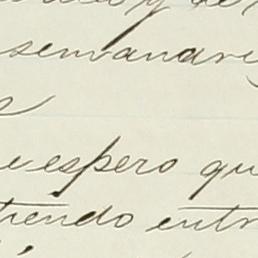 y de
semanari
e espero qu
tiendo entr